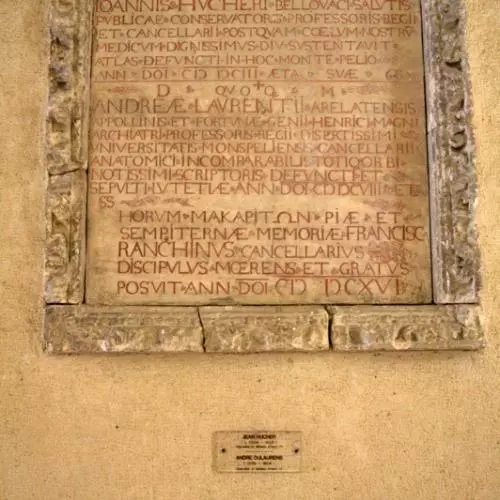 IOANNIS HVCHERI BELLOVACI SALVTIS
PVBLICAE CONSERVATORIS PROFESSORIS REGII
ET CANCELLARII POSTQVAM COELVM NOSTRV
MEDICVM DIGNISSIMVS DIV SVSTENTAVIT
ATLAS DEFVNCTI IN HOC MONTE PELIO
ANN DOI CIƆ IƆCIII ÆTA SVÆ
D QVOQ M
ANDREÆ LAVRENTII ARELATENSIS
APPOLLINIS ET FORTVNÆ GENII HENRICI MAGNI
ARCHIATRI PROFESSORIS REGII DISERTISSIMI
VNIVERSITATIS MONSPELIENSIS CANCELLARII
ANATOMICI INCOMPARABILIS TOTIQ ORBI
NOTISSIMI SCRIPTORIS DEFVNCTI ET
SEPVLTI LVTETIÆ ANN DOI CIƆ IƆCVIII ET
SS
HORVM MAKAPITΩN PIÆ ET
SEMPITERNÆ MEMORIÆ FRANCISC
RANCHINVS CANCELLARIVS
DISCIPVLVS MŒRENS ET GRATVS
POSVIT ANN DOI CIƆ IƆCXVI
JEAN HUCHER
ANDRE DULAURENS